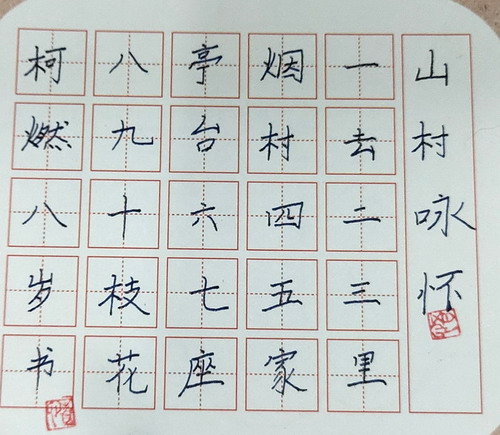 山村咏怀
一去二三里
烟村四五家
亭台六七座
八九十枝花
柯燃八岁书